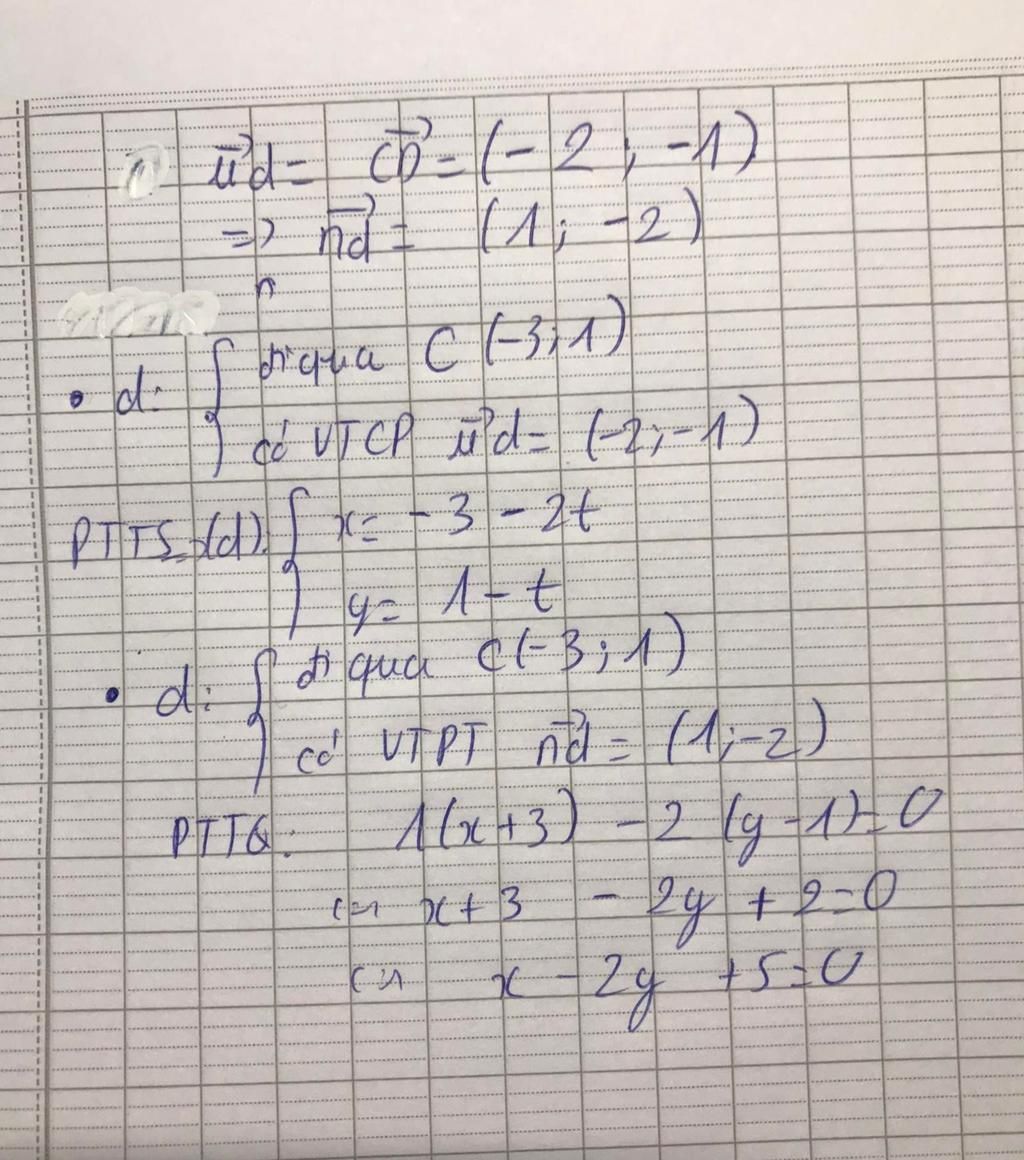 u⃗d = CD⃗ = (-2; -1)
=> n⃗d = (1; -2)
• d: { đi qua C (-3; 1)
có VTCP u⃗d = (-2; -1)
PTTS (d): { x = -3 - 2t
y = 1 - t
• d: { đi qua C(-3; 1)
có VTPT n⃗d = (1; -2)
PTTQ: 1(x+3) - 2 (y-1) = 0
<=> x+3 - 2y + 2 = 0
<=> x - 2y + 5 = 0